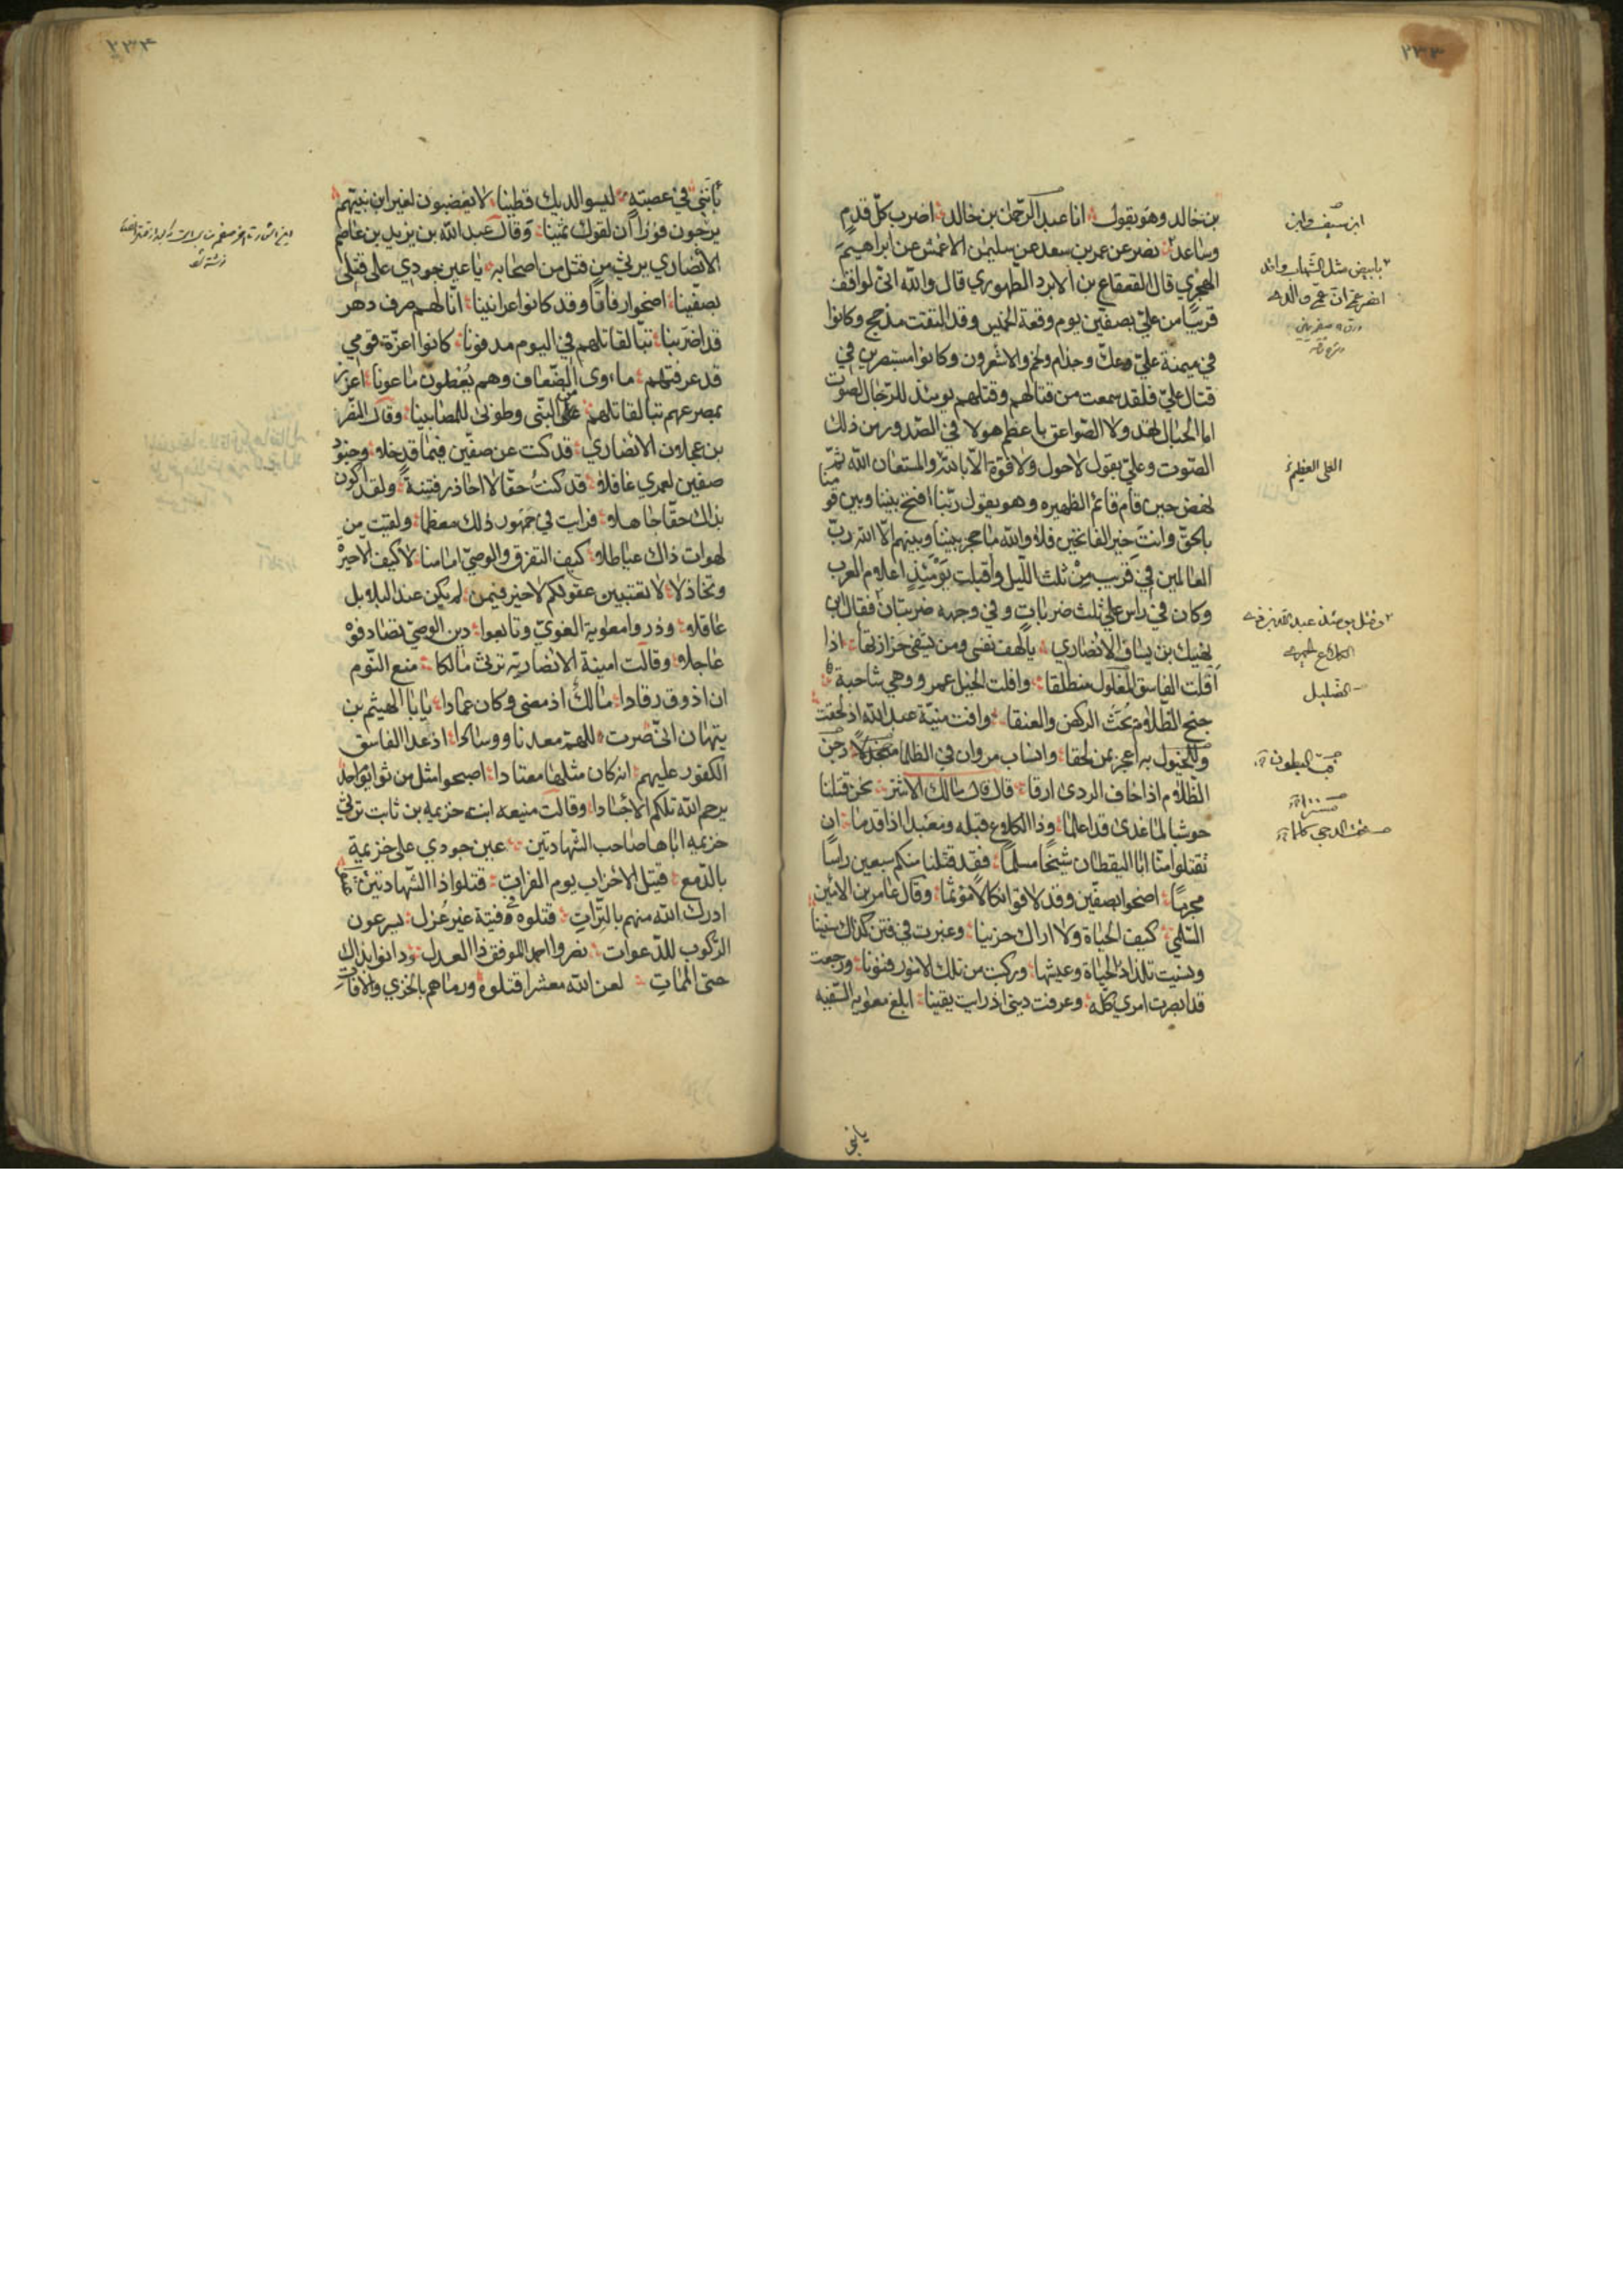 ٢٣٣
بن خالد وهو يقول انا عبد الرحمن بن خالد اضرب كل قدم
وساعد نصر عن عمر بن سعد عن سليمن الاعمش عن ابراهيم
الهجري قال القعقاع بن الابرد الطهوري قال والله اني لواقف
قريبا من علي بصفين يوم وقعة الخميس وقد التقت مذحج وكانوا
في ميمنة علي وعك وجذام ولخم والاشعرون وكانوا مستبصرين في
قتال علي فلقد سمعت من قتالهم وقتلهم يومئذ للرجال الصوت
اما الجبال تهد ولا الصواعق باعظم هولا في الصدور من ذلك
الصوت وعلي يقول لاحول ولا قوة الا بالله والمستعان الله ثم
نهض حين قام قائم الظهيره وهو يقول ربنا افتح بيننا وبين قومنا
بالحق وانت خير الفاتحين فلا والله ما حجز بيننا وبينهم الا الله رب
العالمين في قريب من ثلث الليل واقبلت يومئذ اعلام العرب
وكان في راس علي ثلث ضربات وفي وجهه ضربتان فقال ابن
نهيك بن يساف الانصاري يالهف نفسي ومن يشفي حزازتها اذا
افلت الفاسق المغلول منطلقا وافلت الخيل عمرو وهي شاحبة
جنح الظلام تحث الركض والعنقا وافت منية عبد الله اذ لحقت
والخيول به اعجز بمن لحقا وانساب مروان في الظلما
الظلام اذا خاف الردى ارقا قال قال مالك الاشتر نحن قتلنا
حوشبا لما غدى قد اعلما وذا الكلاع قبله ومعبدا اذ اقدما ان
تقتلوا منا ابا اليقظان شيخا مسلما فقد قتلنا منكم سبعين راسا
مجرما اضحوا بصفين وقد لاقوا نكالا مؤثما وقال عامر بن الامين
السلمي كيف الحياة ولا اراك حزينا وغبرت في فتن كذاك سنينا
ونسيت تلذاذ الحياة وعيشها وركبت من تلك الامور فنونا ورجعت
قد ابصرت امري كله وعرفت ديني اذ رايت يقينا ابلغ معوية السفيه
ابن سيف
انصر عمي ان عمي والدي
العلي العظيم
الضليل
يابني
٢٣٤
بانني في عصبة ليسو الديك قطينا لا يغضبون لغير ابن نبيهم
يرجون فوزا ان لقوك ثمينا وقال عبد الله بن يزيد بن عاصم
الانصاري يرثي من قتل من اصحابه يا عين جودي على قتلى
بصفينا اضحوا رفاقا وقد كانوا عرانينا انا لهم صرف دهر
قد اضر بنا تبا لقاتلهم في اليوم مدفونا كانوا اعزة قومي
قد عرفتهم ماوى الضعاف وهم يعطون ماعونا اعزز
بمصرعهم تبا لقاتلهم على النبي وطوبى للمصابينا وقال النضر
بن عجلان الانصاري قد كنت عن صفين فيما قد خلا وجنود
صفين لعمري غافلا قد كنت حقا لا احاذر فتنة ولقد اكون
بذاك حقا جاهلا فرايت في جمهور ذلك معظما ولقيت من
لهوات ذاك عياطلا كيف التفرق والوصي امامنا لا كيف الا حيرة
وتخاذلا لا تعتبين عقولكم لا خير فيمن لم يكن عند البلابل
عاقلا وذروا معوية الغوي وتابعوا دين الوصي تصادفوه
عاجلا وقالت امينة الانصارية ترثي مالكا منع النوم
ان اذوق رقادا مالك اذ مضى وكان عمادا يا ابا الهيثم بن
تيهان اني صرت للهم معدنا ووسادا اذ غدا الفاسق
الكفور عليهم انه كان مثلها معتادا اصبحوا مثل من ثوا يوم احد
يرحم الله تلكم الاجسادا وقالت منيعه ابنت خزيمه بن ثابت ترثي
خزيمه اباها صاحب الشهادتين عين جودي على خزيمة
بالدمع قتيل الاحزاب يوم الفرات قتلوا ذا الشهادتين
ادرك الله منهم بالترات قتلوه في فتية غير عزل يسرعون
الركوب للدعوات نصروا احمد الموفق ذا العدل ودانوا بذاك
حتى الممات لعن الله معشرا قتلوه ورماهم بالخزي والافات